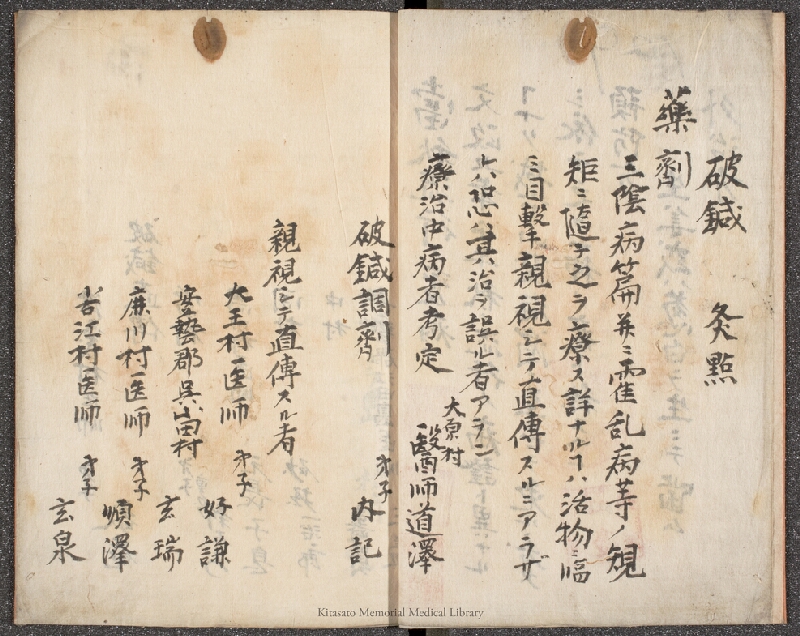 破鍼　灸點
藥劑
三陰病篇并ニ霍乱病等ノ規
矩ニ隨テ之ヲ療ス詳ナルヿハ活物ニ臨
ミ目撃親視シテ直傳スルニアラザ
レハ恐ハ其治ヲ誤ル者アラン
療治中病者考定
大泉村
醫師道澤
破鍼調劑　弟子　内記
親視シテ直傳スル者
大王村醫師　弟子　好謙
安藝郡呉山田村　玄瑞
麻川村医師　弟子　順澤
岩江村医師　弟子　玄泉
Kitasato Memorial Medical Library